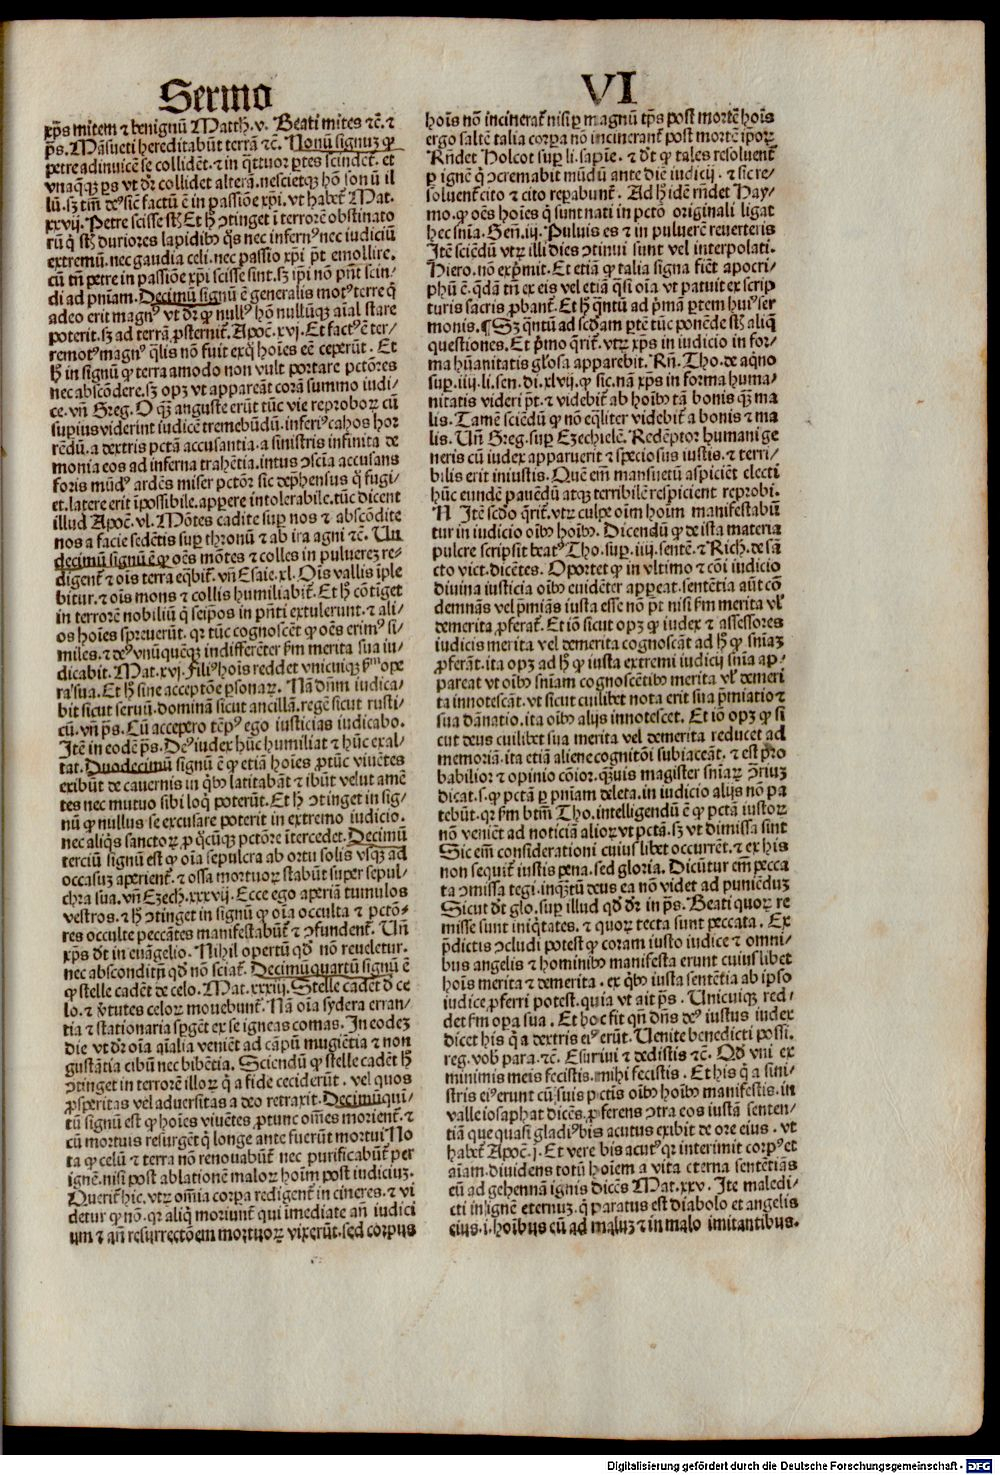 Sermo
VI
xp̄s mitem ⁊ benignū Matth. v. Beati mites ⁊c̄. ⁊
p̄s. Māsueti hereditabūt terrā ⁊c̄. Nonū signuꝫ ꝙ
petre adinuicē se collidēt. ⁊ in q̄ttuor ꝑtes scindēt. et
vnaq̄qꝫ ꝑs vt dr̄ collidet alterā. nescietqꝫ hō sonū il
lū. sꝫ tm̄ deꝰ sic̄ factū ē in passiōe xp̄i. vt habet̄ Mat.
xxvij. Petre scisse st̄ Et hꝰ ↄtinget ī terrorē obstinato
rū q̄ st̄ duriores lapidibꝰ q̄s nec infernꝰ nec iudiciū
extremū. nec gaudia celi. nec passio xp̄i pt̄ emollire.
cū tn̄ petre in passiōe xp̄i scisse sint. sꝫ ip̄i nō pn̄t scin⸗
di ad pn̄iam. Decimū signū ē generalis motꝰ terre q̄
adeo erit magnꝰ vt dr̄ ꝙ nullꝰ hō nullūqꝫ aīal stare
poterit. sꝫ ad terrā ꝓsternit̄. Apoc̄. xvj. Et factꝰ ē ter⸗
remotꝰ magnꝰ q̄lis nō fuit ex q̄ hoīes eē ceperūt. Et
hꝰ in signū ꝙ terra amodo non vult portare pctōres
nec abscōdere. sꝫ opꝫ vt appareāt corā summo iudi⸗
ce. vn̄ Greg. O q̄ꝫ anguste erūt tūc vie reproboꝝ cū
supius viderint iudicē tremebūdū. inferiꝰ cahos hor
rēdū. a dextris pctā accusantia. a sinistris infinita de
monia eos ad inferna trahētia. intus ↄscīa accusans
foris mūdꝰ ardēs miser pctōr sic dep̄hensus q̄ fugi⸗
et. latere erit īpossibile. apꝑere intolerabile. tūc dicent
illud Apoc̄. vl. Mōtes cadite suꝑ nos ⁊ abscōdite
nos a facie sedētis suꝑ thronū ⁊ ab ira agni ⁊c̄. Un
decimū signū ē ꝙ oēs mōtes ⁊ colles in puluereꝫ re⸗
digent̄ ⁊ oīs terra eq̄bit̄. vn̄ Esaie. xl. Oīs vallis īple
bitur. ⁊ oīs mons ⁊ collis humiliabit̄. Et hꝰ cōtiget
in terrorē nobiliū q̄ seip̄os in pn̄ti extulerunt. ⁊ ali⸗
os hoīes spreuerūt. qꝛ tūc cognoscēt ꝙ oēs erimꝰ si⸗
miles. ⁊ deꝰ vnūquēqꝫ indifferēter ẜm merita sua iu⸗
dicabit. Mat. xvj. Filiꝰ hoīs reddet vnicuiqꝫ ẜm ope
ra sua. Et hꝰ sine acceptōe ꝑsonaꝝ. Nā dn̄m iudica⸗
bit sicut seruū. dominā sicut ancillā. regē sicut rusti⸗
cū. vn̄ p̄s. Cū accepero tēpꝰ ego iusticias iudicabo.
Itē in eodē p̄s. Deꝰ iudex hūc humiliat ⁊ hūc exal⸗
tat. Duodecimū signū ē ꝙ etiā hoīes ꝓtūc viuētes
exibūt de cauernis in q̄bꝰ latitabāt ⁊ ibūt velut amē
tes nec mutuo sibi loq̄ poterūt. Et hꝰ ↄtinget in sig⸗
nū ꝙ nullus se excusare poterit in extremo iudicio.
nec aliq̄s sanctoꝝ ꝓ q̄cūqꝫ pctōre ītercedet. Decimū
terciū signū est ꝙ oīa sepulcra ab ortu solis vsqꝫ ad
occasuꝫ aperient̄. ⁊ ossa mortuoꝝ stabūt super sepul⸗
chra sua. vn̄ Ezech. xxxvij. Ecce ego aperiā tumulos
vestros. ⁊ hꝰ ↄtinget in signū ꝙ oīa occulta ⁊ pctō⸗
res occulte peccātes manifestabūt̄ ⁊ ↄfundent̄. Un̄
xp̄s dt̄ in euāgelio. Nihil opertū qd̄ nō reueletur.
nec absconditū qd̄ nō sciat̄. Decimūquartū signū ē
ꝙ stelle cadēt de celo. Mat. xxiiij. Stelle cadēt d̄ ce
lo. ⁊ v̄tutes celoꝝ mouebunt̄. Nā oīa sydera erran⸗
tia ⁊ stationaria spgēt ex se igneas comas. In eodeꝫ
die vt dr̄ oīa aīalia veniēt ad cāpū mugiētia ⁊ non
gustātia cibū nec bibētia. Sciendū ꝙ stelle cadēt hꝰ
ↄtinget in terrorē illoꝝ q̄ a fide ceciderūt. vel quos
ꝓsꝑitas vel aduersitas a deo retraxit. Decimūqui⸗
tū signū est ꝙ hoīes viuētes ꝓtunc om̄es morient̄. ⁊
cū mortuis resurgēt q̄ longe ante fuerūt mortui No
ta ꝙ celū ⁊ terra nō renouabūt̄ nec purificabūt̄ per
ignē. nisi post ablationē maloꝝ hoīm post iudiciuꝫ.
Querit̄ hic. vtꝝ om̄ia corꝑa redigent̄ in cineres. ⁊ vi
detur ꝙ nō. qꝛ aliq̄ moriunt̄ qui īmediate an̄ iudici
um ⁊ an̄ resurrectōem mortuoꝝ vixerūt. sed corpus
hoīs nō incinerat̄ nisi ꝑ magnū tp̄s post mortē hoīs
ergo saltē talia corꝑa nō incinerant̄ post mortē ip̄oꝝ
Rn̄det Holcot suꝑ li. sapīe. ⁊ dt̄ ꝙ tales resoluent̄
ꝑ ignē q̄ ↄcremabit mūdū ante diē iudicij. ⁊ sic re⸗
soluent̄ cito ⁊ cito reꝑabunt̄. Ad hꝰ idē rn̄det Hay⸗
mo. ꝙ oēs hoīes q̄ sunt nati in pctō originali ligat
hec sn̄ia. Gen̄. iij. Puluis es ⁊ in puluerē reuerteris
Itē sciēdū vtꝝ illi dies ↄtinui sunt vel interpolati.
Hiero. nō exp̄mit. Et etiā ꝙ talia signa fiēt apocri⸗
phū ē. q̄dā tn̄ ex eis vel etiā q̄si oīa vt patuit ex scrip
turis sacris ꝓbant̄. Et hꝰ q̄ntū ad p̄mā ꝑtem huiꝰ ser
monis. ¶ Sꝫ q̄ntū ad scd̄am ꝑtē tūc ponēde st̄ aliq̄
questiones. Et p̄mo q̄rit̄. vtꝝ xp̄s in iudicio in for⸗
ma hūanitatis gl̓osa apparebit. Rn̄. Tho. de aq̄no
suꝑ. iiij. li. sen. di. xlvij. ꝙ sic. nā xp̄s in forma huma⸗
nitatis videri pt̄. ⁊ videbit̄ ab hoībꝰ tā bonis q̄ꝫ ma
lis. Tamē sciēdū ꝙ nō eq̄liter videbit̄ a bonis ⁊ ma
lis. Un̄ Greg. suꝑ Ezechielē. Redēptor humani ge
neris cū iudex apparuerit ⁊ speciosus iustis. ⁊ terri⸗
bilis erit iniustis. Quē em̄ mansuetū aspiciēt electi
hūc eundē pauēdū atqꝫ terribilē respicient reprobi.
N Itē scdo q̄rit̄. vtꝝ culpe oīm hoīm manifestabū
tur in iudicio oībꝰ hoībꝰ. Dicendū ꝙ de ista materia
pulcre scripsit beatꝰ Tho. suꝑ. iiij. sentē. ⁊ Rich. de sā
cto vict. dicētes. Oportet ꝙ in vltimo ⁊ cōi iudicio
diuina iusticia oībꝰ euidēter apꝑeat. sentētia aūt cō
demnās vel p̄miās iusta esse nō pt̄ nisi ẜm merita vl̓
demerita ꝓferat̄. Et iō sicut opꝫ ꝙ iudex ⁊ assessores
iudicis merita vel demerita cognoscāt ad hꝰ ꝙ sn̄iaꝫ
ꝓferāt. ita opꝫ ad hꝰ ꝙ iusta extremi iudicij sn̄ia ap⸗
pareat vt oībꝰ sn̄iam cognoscētibꝰ merita vl̓ demeri
ta innotescāt. vt sicut cuilibet nota erit sua p̄miatio ⁊
sua dānatio. ita oībꝰ alijs innotescet. Et iō opꝫ ꝙ si
cut deus cuilibet sua merita vel demerita reducet ad
memoriā. ita etiā aliene cognitōi subiaceāt. ⁊ est ꝓro
babilior ⁊ opinio cōior. q̄ꝫuis magister sn̄iaꝝ ↄ̄riuꝫ
dicat. s. ꝙ pctā ꝑ pn̄iam deleta. in iudicio alijs nō pa
tebūt. qꝛ ẜm btm̄ Tho. intelligendū ē ꝙ pctā iustoꝝ
nō veniēt ad noticiā alioꝝ vt pctā. sꝫ vt dimissa sint
Sic em̄ considerationi cuiuslibet occurrēt. ⁊ ex his
non sequit̄ iustis pena. sed gloria. Dicūtur em̄ pecca
ta ↄmissa tegi. inqꝫtū deus ea nō videt ad puniēduꝫ
Sicut dt̄ glo. suꝑ illud qd̄ dr̄ in p̄s. Beati quoꝝ re
misse sunt iniq̄tates. ⁊ quoꝝ tecta sunt peccata. Ex
p̄dictis ↄcludi potest ꝙ coram iusto iudice ⁊ omni⸗
bus angelis ⁊ hominibꝰ manifesta erunt cuiuslibet
hoīs merita ⁊ demerita. ex q̄bꝰ iusta sentētia ab ipso
iudice ꝓferri potest. quia vt ait p̄s. Unicuiqꝫ red⸗
det ẜm oꝑa sua. Et hoc fit qn̄ dn̄s deꝰ iustus iudex
dicet his q̄ a dextris eiꝰ erūt. Uenite benedicti possi.
reg. vob̄ para. ⁊c̄. Esuriui ⁊ dedistis ⁊c̄. Qd̄ vni ex
minimis meis fecistis. mihi fecistis. Et his q̄ a sini⸗
stris eiꝰ erunt cū suis pctīs oībꝰ hoībꝰ manifestis. in
valle iosaphat dicēs. ꝓferens ↄtra eos iustā senten⸗
tiā que quasi gladiꝰ bis acutus exibit de ore eius. vt
habet̄ Apoc̄. j. Et vere bis acutꝰ qꝛ interimit corpꝰ et
aīam. diuidens totū hoīem a vita eterna sentētiās
eū ad gehennā ignis dicēs Mat. xxv. Ite maledi⸗
cti in ignē eternuꝫ. q̄ paratus est diabolo et angelis
eius. i. hoībus eū ad maluꝫ ⁊ in malo imitantibus.
Digitalisierung gefördert durch die Deutsche Forschungsgemeinschaft - DFG